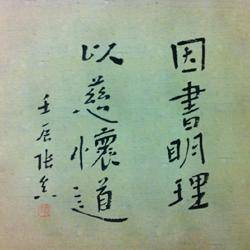 因書明理
以慈懷道
壬辰